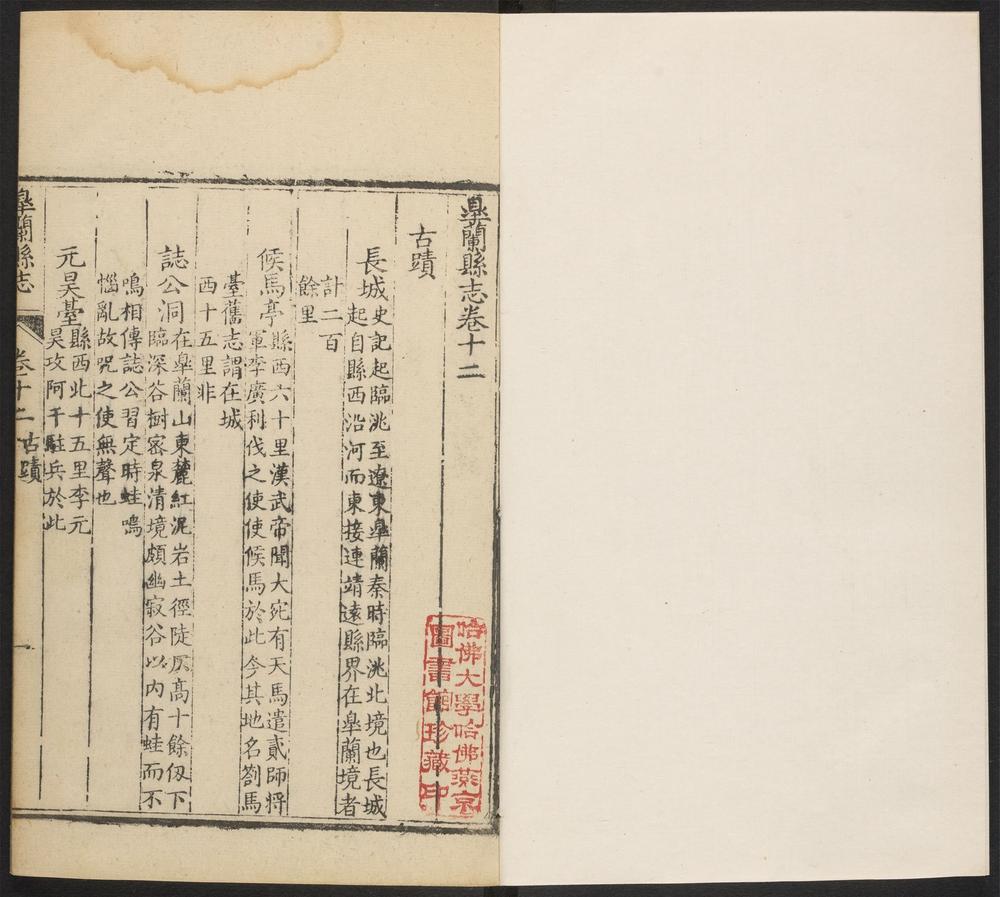 臯蘭縣志卷十二
古蹟
長城史記起臨洮至遼東臯蘭秦時臨洮北境也長城
起自縣西沿河而東接連靖遠縣界在臯蘭境者
計二百
餘里
候馬亭縣西六十里漢武帝聞大宛有天馬遣貳師將
軍李廣利伐之使使候馬於此今其地名劄馬
臺舊志謂在城
西十五里非
誌公洞在臯蘭山東麓紅泥岩土徑陡仄髙十餘仭下
臨深谷樹密泉清境頗幽寂谷以内有蛙而不
鳴相傳誌公習定時蛙鳴
惱亂故咒之使無聲也
元昊臺縣西北十五里李元
昊攻阿干駐兵於此
臯蘭縣志 卷十二 古蹟 一
哈佛大學哈佛燕京
圖書館珍藏印